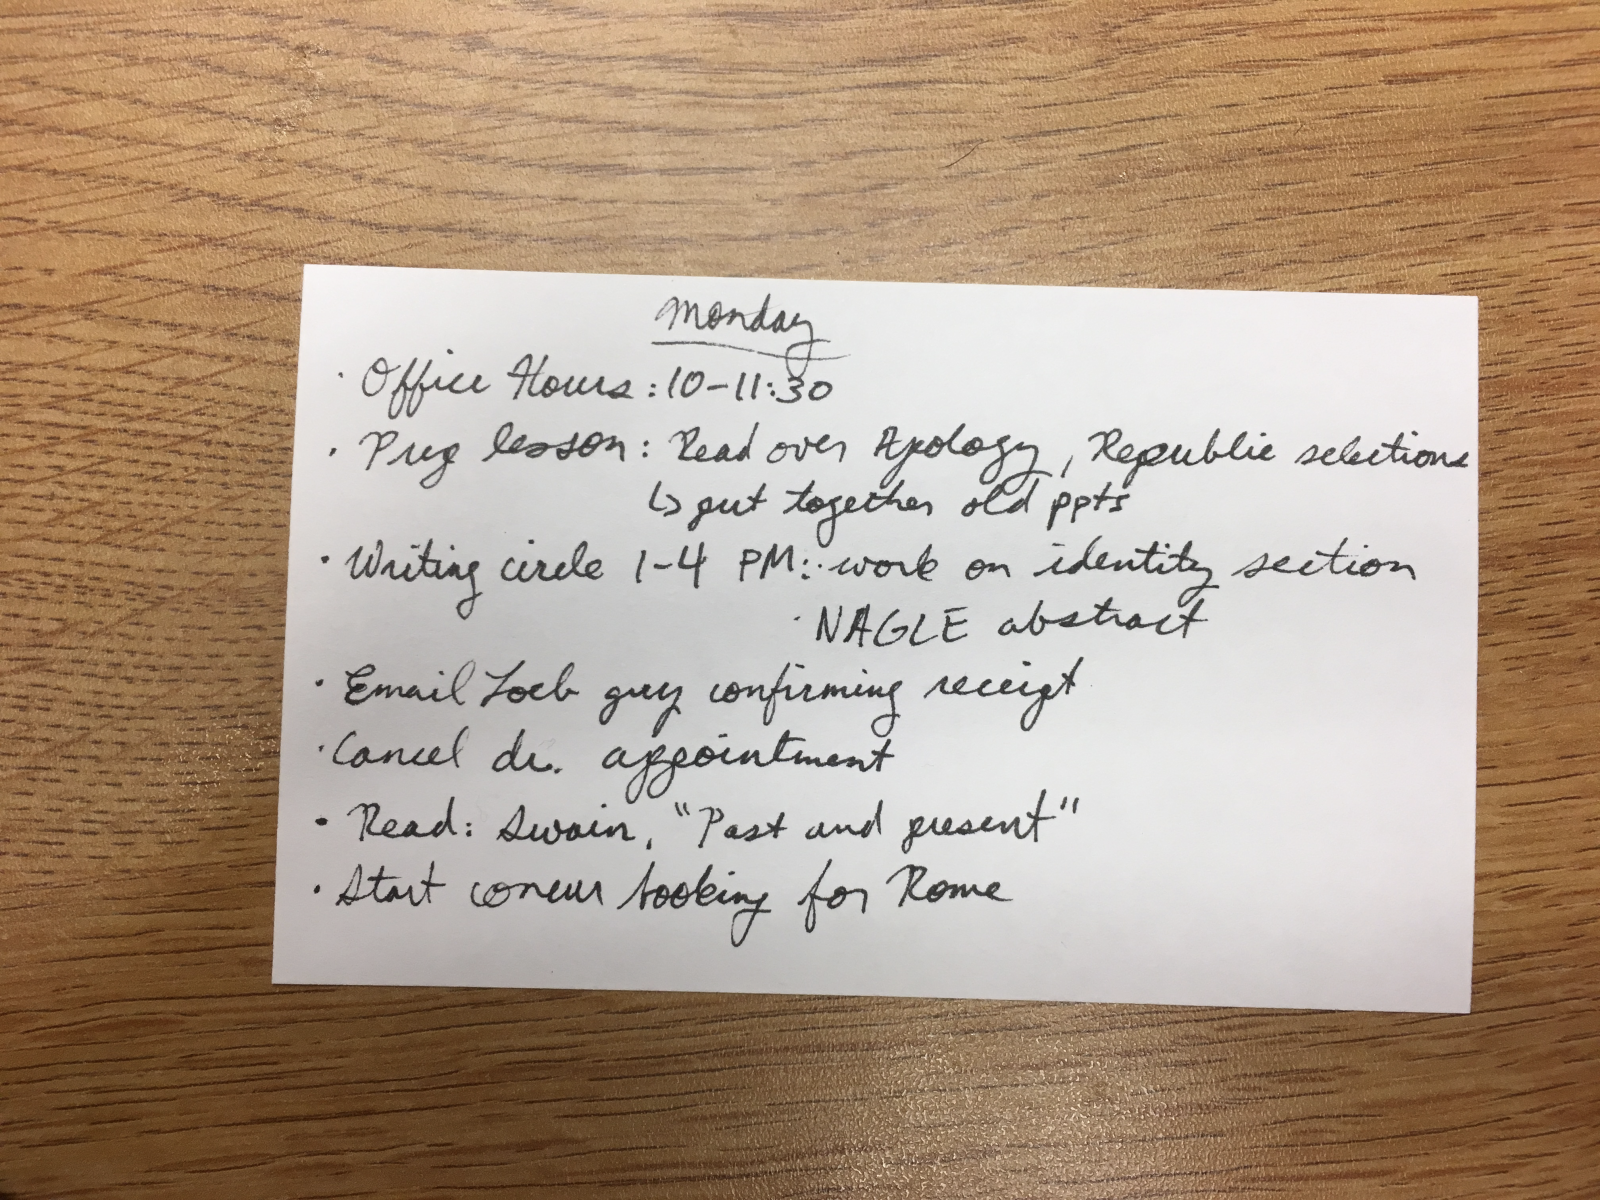 Monday
· Office Hours: 10-11:30
· Prep lesson: Read over Apology, Republic selections
↳ put together old ppts
· Writing circle 1-4 PM: · work on identity section
· NAGLE abstract
· Email Loeb guy confirming receipt
· Cancel dr. appointment
· Read: Swain, "Past and present"
· Start concur booking for Rome